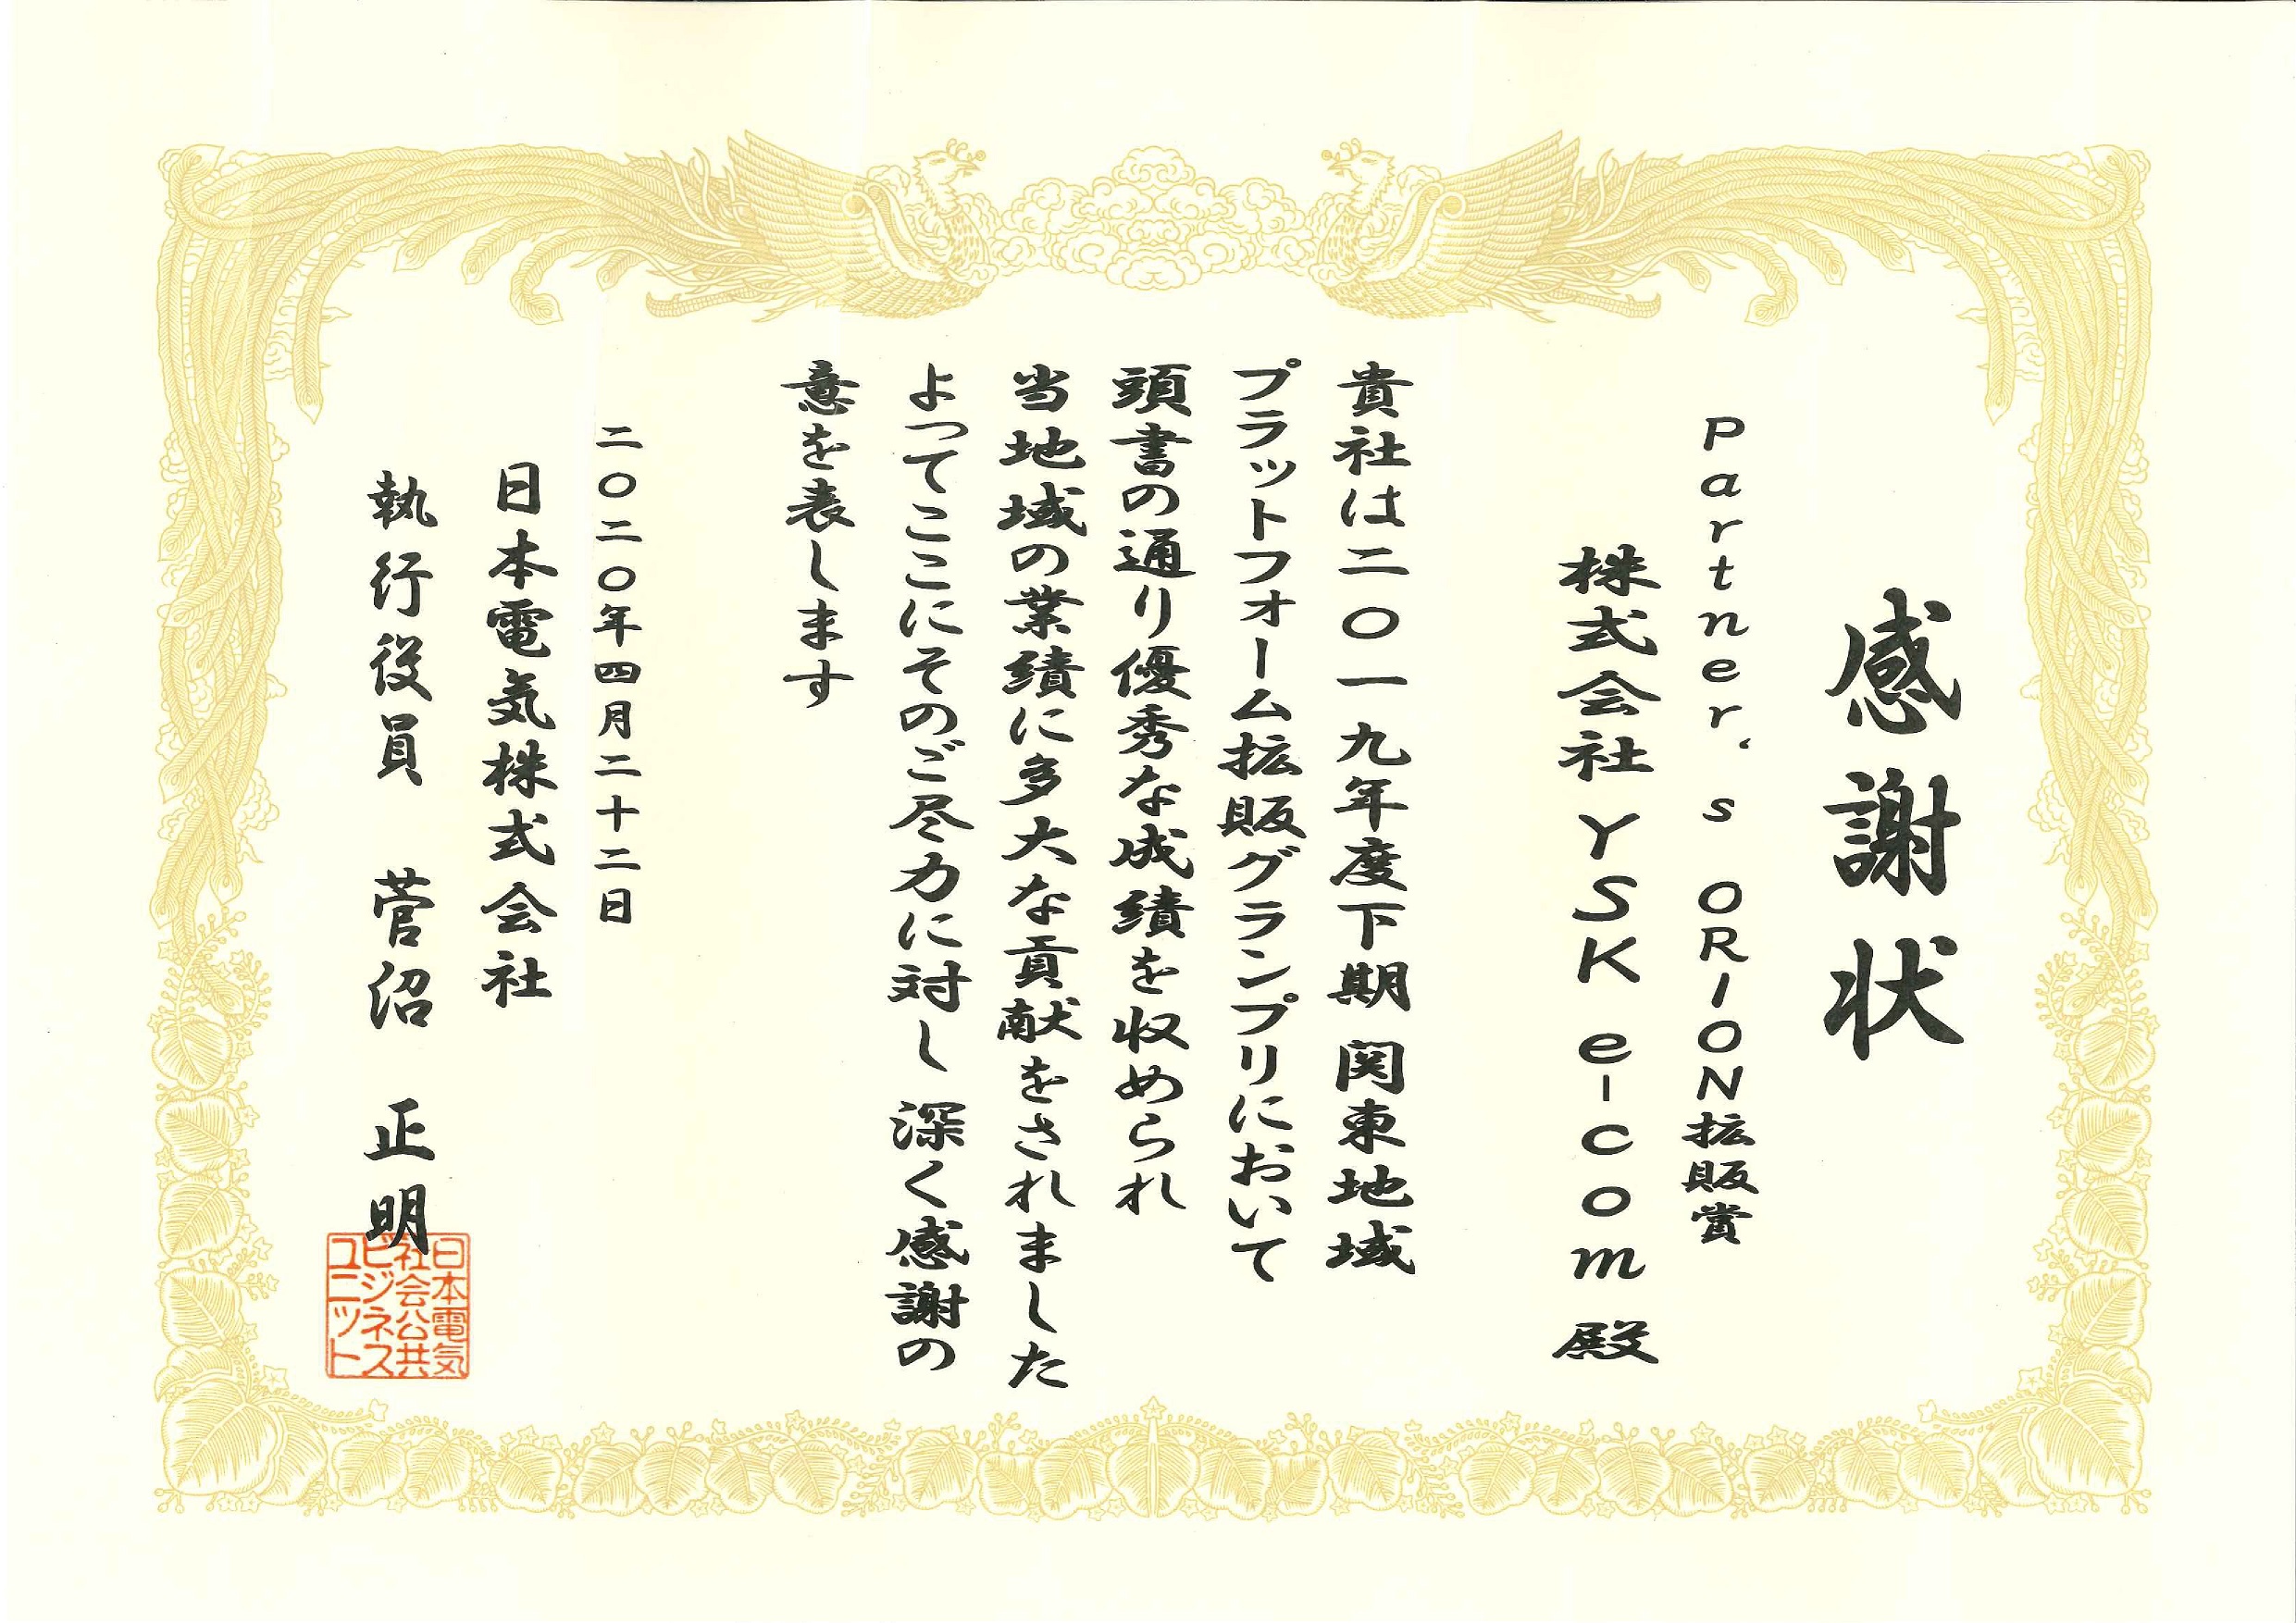 感謝状
Partner's ORION拡販賞
株式会社YSK e-com 殿
貴社は二〇一九年度下期 関東地域
プラットフォーム拡販グランプリにおいて
頭書の通り優秀な成績を収められ
当地域の業績に多大な貢献をされました
よってここにそのご尽力に対し 深く感謝の
意を表します
二〇二〇年四月二十二日
日本電気株式会社
執行役員 菅沼 正明
日本電気
社会公共
ビジネス
ユニット